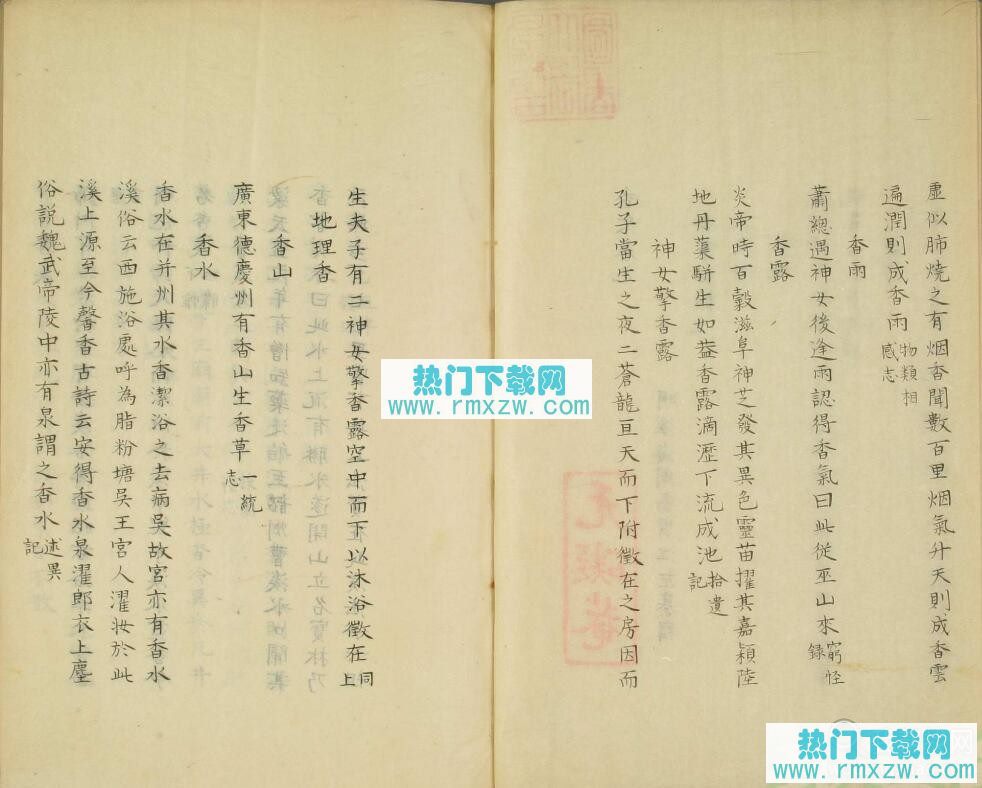 虛似肺燒之有烟香聞數百里烟氣升天則成香雲
遍潤則成香雨 物類相感志
香雨
蕭總遇神女後逢雨認得香氣曰此從巫山來 窮怪錄
香露
炎帝時百穀滋阜神芝發其異色靈苗擢其嘉穎陸
地丹蕖駢生如葢香露滴瀝下流成池 拾遺記
神女擎香露
孔子當生之夜二蒼龍亘天而下附徵在之房因而
生夫子有二神女擎香露空中而下以沐浴徵在 同上
地理香
香山
廣東德慶州有香山生香草 一統志
香水
香水在并州其水香潔浴之去病吳故宮亦有香水
溪俗云西施浴處呼為脂粉塘吳王宮人濯妝於此
溪上源至今馨香古詩云安得香水泉濯郎衣上塵
俗說魏武帝陵中亦有泉謂之香水 述異記
热门下载网
www.rmxzw.com
热门下载网
www.rmxzw.com